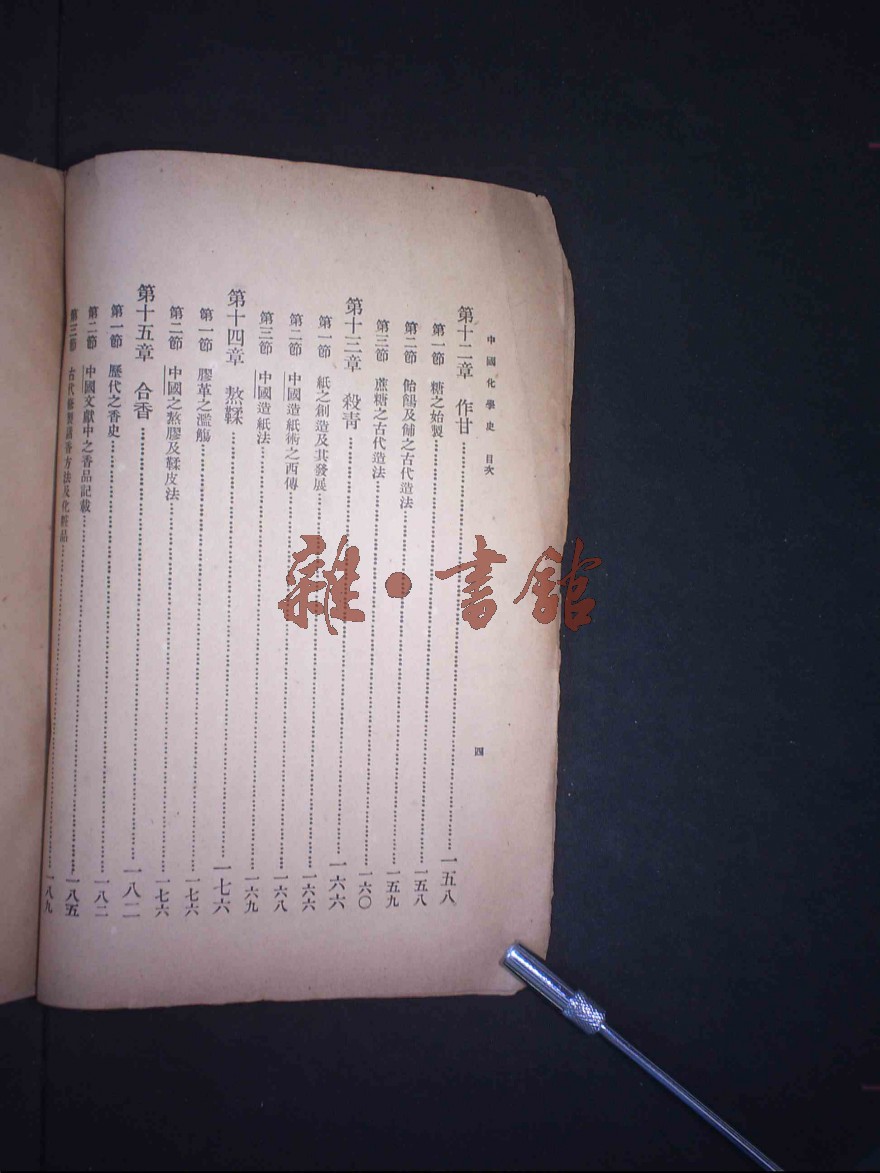 中國化學史 目次
四
第十二章 作甘⋯⋯一五八
第一節 糖之始製⋯⋯一五八
第二節 飴餳及餔之古代造法⋯⋯一五九
第三節 蔗糖之古代造法⋯⋯一六〇
第十三章 殺青⋯⋯一六六
第一節 紙之創造及其發展⋯⋯一六六
第二節 中國造紙術之西傳⋯⋯一六八
第三節 中國造紙法⋯⋯一六九
第十四章 熬鞣⋯⋯一七六
第一節 膠革之濫觴⋯⋯一七六
第二節 中國之熬膠及鞣皮法⋯⋯一七六
第十五章 合香⋯⋯一八二
第一節 歷代之香史⋯⋯一八二
第二節 中國文獻中之香品記載⋯⋯一八五
第三節 古代修製諸香方法及化粧品⋯⋯一八九
雜·書館